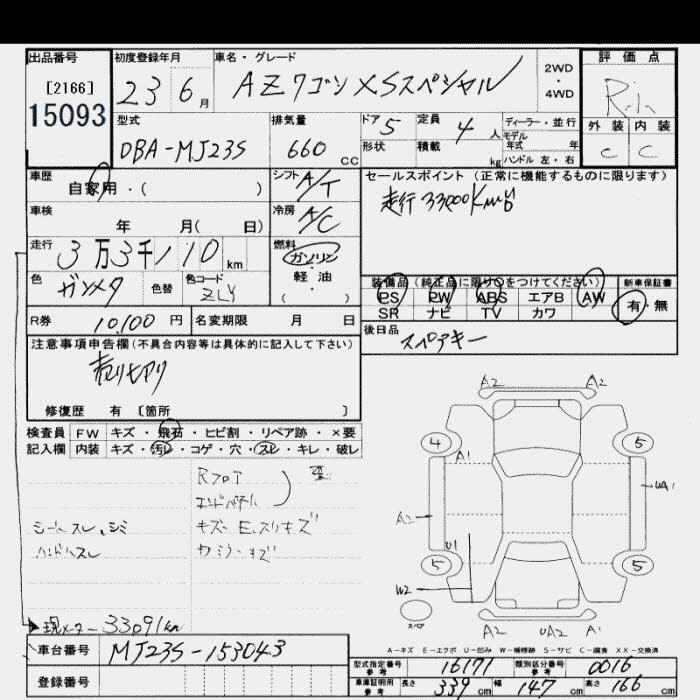 出品番号 初度登録年月 車名・グレード 評価点
[2166] 23 6月 AZワゴン XSスペシャル 2WD・4WD
15093 型式 排気量 ドア 定員 ディーラー・並行 外装 内装
DBA-MJ23S 660 CC 5 4人 モデル年式 年 C C
形状 積載 kg ハンドル 左・右
車歴 自家用・( ) シフト A/T セールスポイント (正常に機能するものに限ります)
車検 年 月( 日) 冷房 A/C 走行33000Km台
走行 3万3千110km 燃料 ガソリン・軽油・( )
色 ガンメタ 色替 色コード ZLY
装備品(純正品に限り○をつけてください) 新車保証書
PS PW ABS エアB AW 有・無
SR ナビ TV カワ
R券 10,100円 名変期限 月 日 後日品 スペアキー
注意事項申告欄(不具合内容等は具体的に記入して下さい)
売り切り
修復歴 有 [箇所 ]
検査員 FW キズ・飛石・ヒビ割・リペア跡・×要
記入欄 内装 キズ・汚れ・コゲ・穴・スレ・キレ・破レ
Rフロア
エンドパネル
シートスレ、シミ キズ・E、スリキズ
ハンドルスレ
A2 A1
4 5
A1
UA1
A2
U1
5 5
W2
スペア
A2 UA2 A2
現メーター 33091km
A-キズ E-エクボ U-凹み W-補修跡 S-サビ C-腐食 XX-交換済
車台番号 MJ23S-153043
型式指定番号 参考 16171 類別区分番号 参考 0016
登録番号
車庫証明用 参考 長さ 339cm 幅 147cm 高さ 166cm